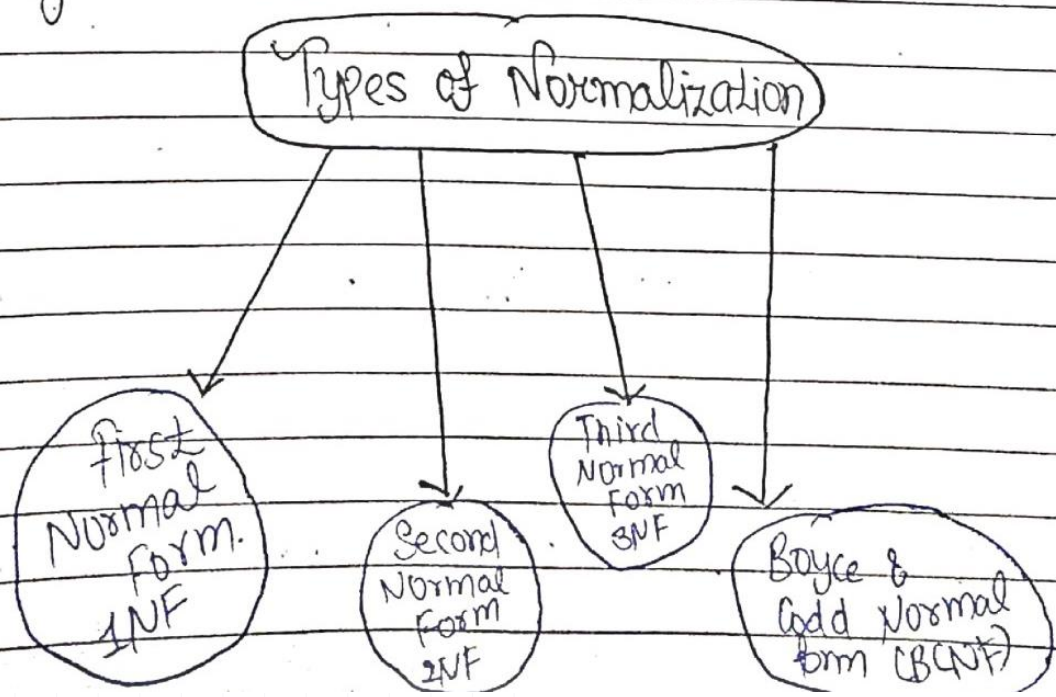 Types of Normalization
First
Normal
Form.
1NF
Second
Normal
Form
2NF
Third
Normal
Form
3NF
Boyce &
Codd Normal
form (BCNF)